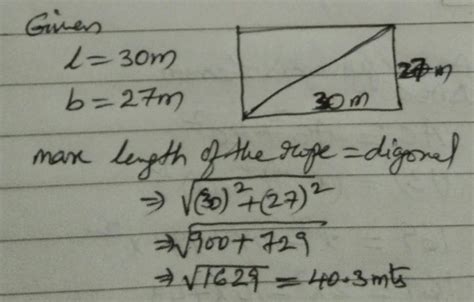 Given
l = 30m
b = 27m
27 m
30 m
max length of the rope = digonal
⇒ √(30)²+(27)²
⇒ √900 + 729
⇒ √1629 = 40.3 mts